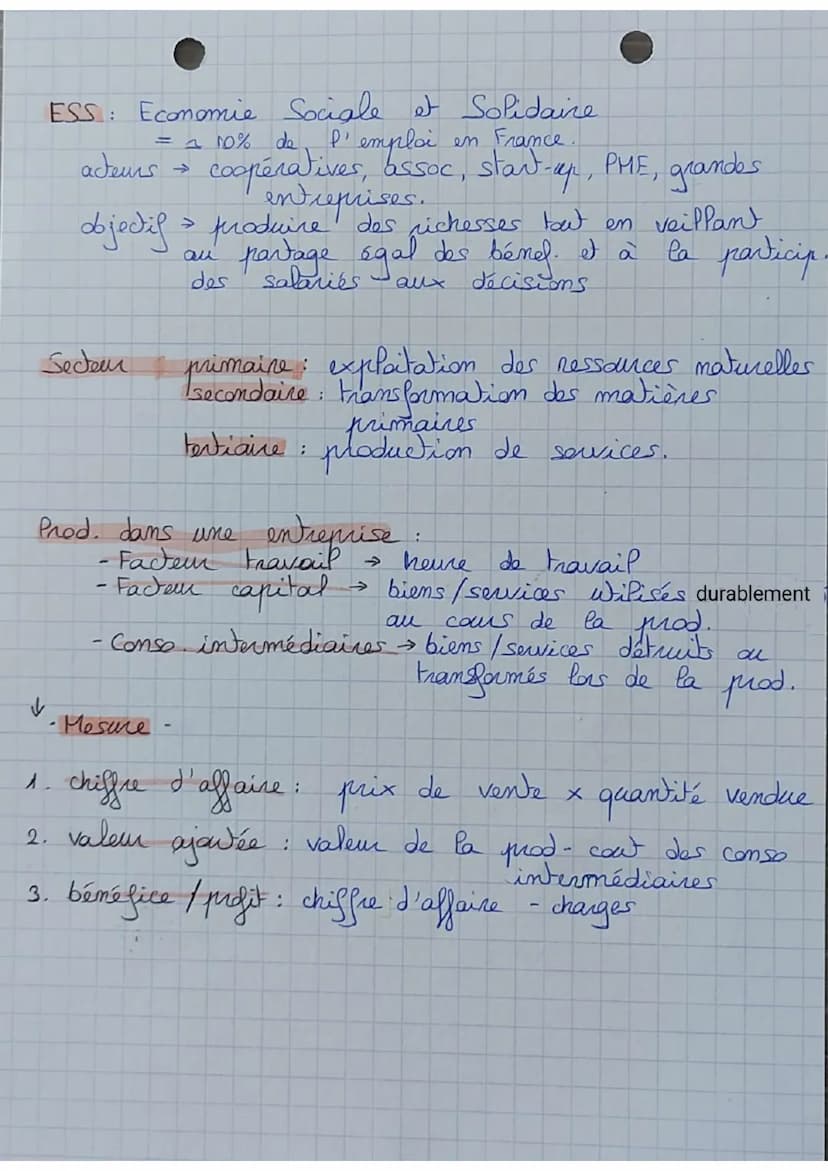 ESS : Economie Sociale et Solidaire
= 10% de l'emploi en France.
acteurs → coopératives, assoc, start-up, PME, grandes
entreprises.
objectif → produire des richesses tout en veillant
au partage égal des bénef. et à la particip.
des salariés aux décisions
Secteur primaire : exploitation des ressources naturelles
secondaire : transformation des matières
primaires
tertiaire : production de services.
Prod. dans une entreprise :
- Facteur travail → heure de travail
- Facteur capital → biens/services utilisés durablement
au cours de la prod.
- Conso. intermédiaires → biens/services détruits ou
transformés lors de la prod.
↓
. Mesure -
1. chiffre d'affaire : prix de vente x quantité vendue
2. valeur ajoutée : valeur de la prod - cout des conso
intermédiaires
3. bénéfice / profit : chiffre d'affaire - charges